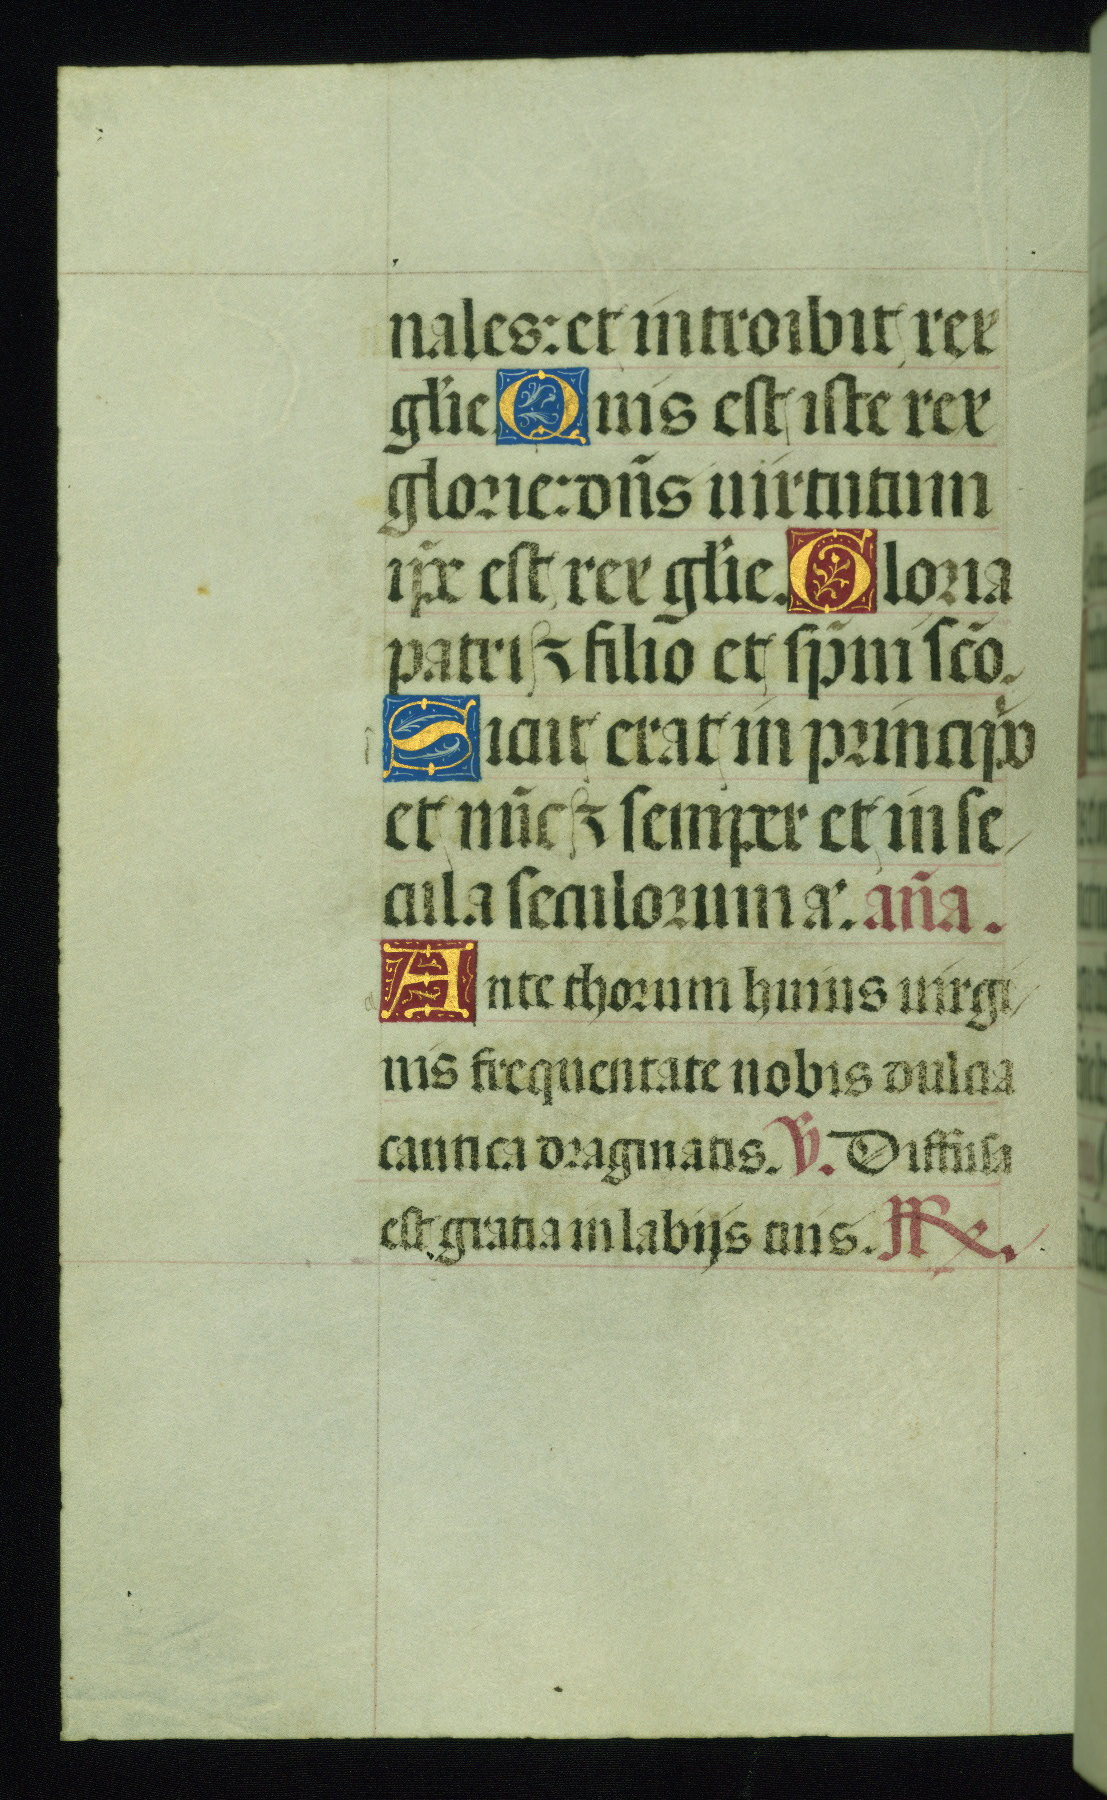 nales: et introibit rex
gl̄ie Quis est iste rex
glorie: dn̄s uirtutum
ip̄e est rex gl̄ie. Gloria
patri ⁊ filio et sp̄ui sc̄o.
Sicut erat in principio
et nūc ⁊ semper et in se
cula seculorum a. an̄a.
Ante thorum huius uirgi
nis frequentate nobis dulcia
cantica dragmatis. V. Diffusa
est gratia in labijs tuis. R.